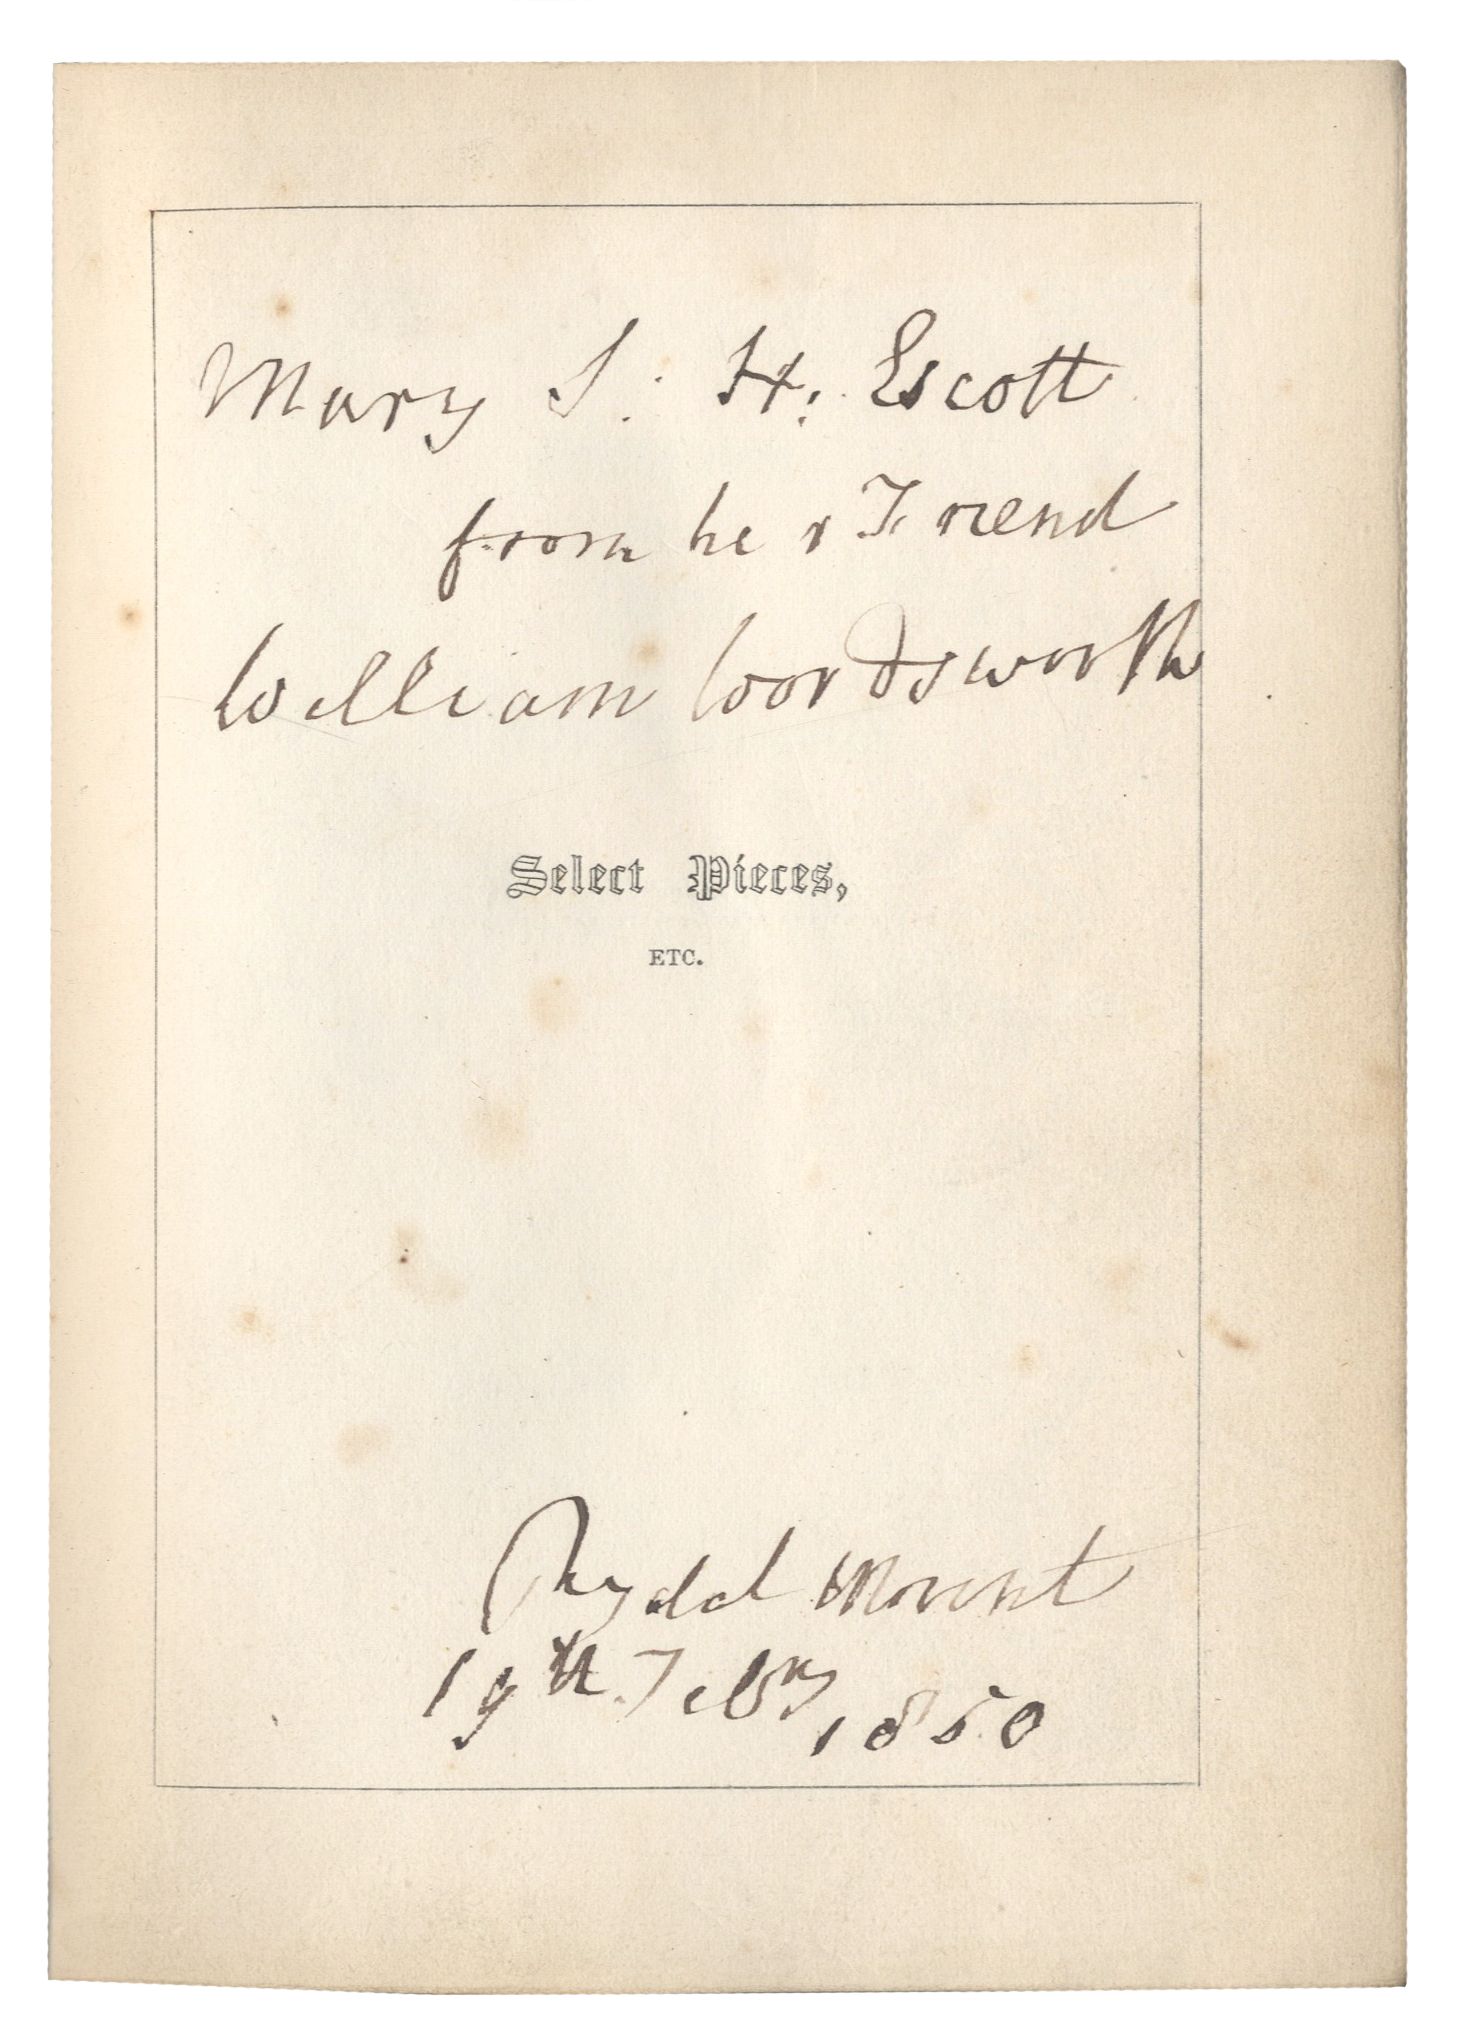 Mary S. H. Escott
from her Friend
William Wordsworth
Select Pieces,
ETC.
Rydal Mount
19th Febry 1850